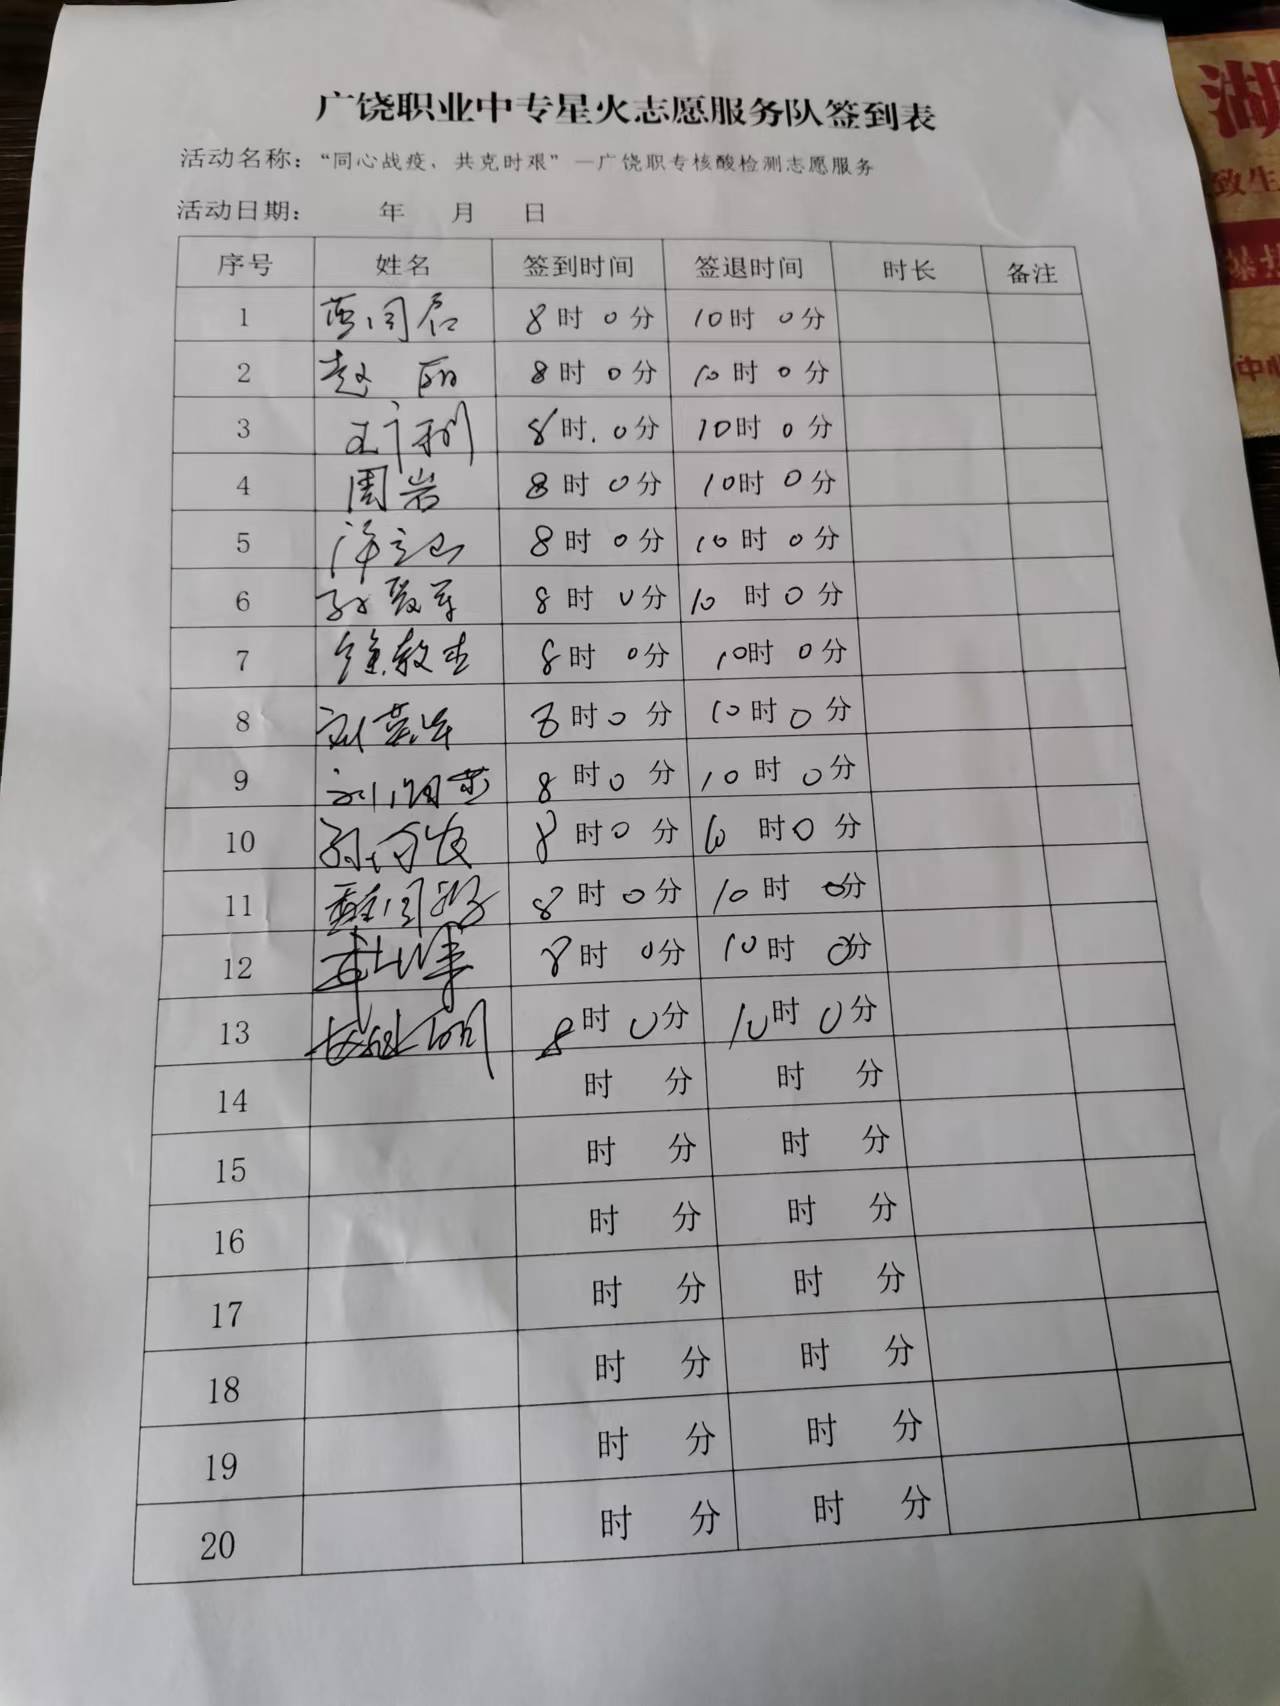 广饶职业中专星火志愿服务队签到表
活动名称：“同心战疫、共克时艰”—广饶职专核酸检测志愿服务
活动日期： 年 月 日
序号 姓名 签到时间 签退时间 时长 备注
1 8时0分 10时0分
2 赵丽 8时0分 10时0分
3 8时.0分 10时0分
4 周岩 8时0分 10时0分
5 8时0分 10时0分
6 8时0分 10时0分
7 8时0分 10时0分
8 8时0分 10时0分
9 8时0分 10时0分
10 8时0分 10时0分
11 8时0分 10时0分
12 8时0分 10时0分
13 8时0分 10时0分
14 时 分 时 分
15 时 分 时 分
16 时 分 时 分
17 时 分 时 分
18 时 分 时 分
19 时 分 时 分
20 时 分 时 分
湖
致生